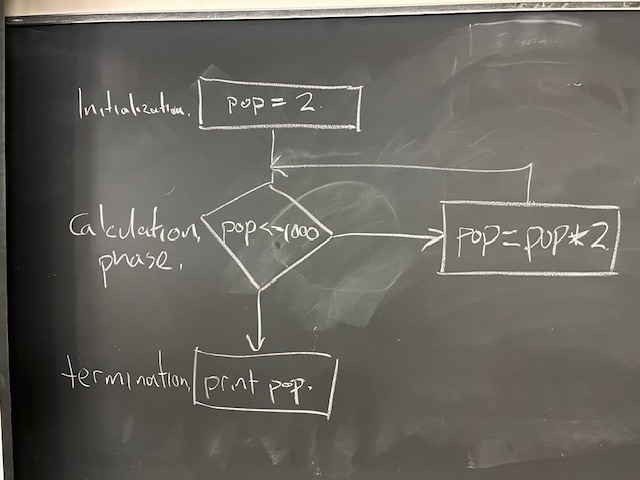 Initialization. pop = 2.
Calculation pop<=1000 pop=pop*2
phase.
termination print pop.